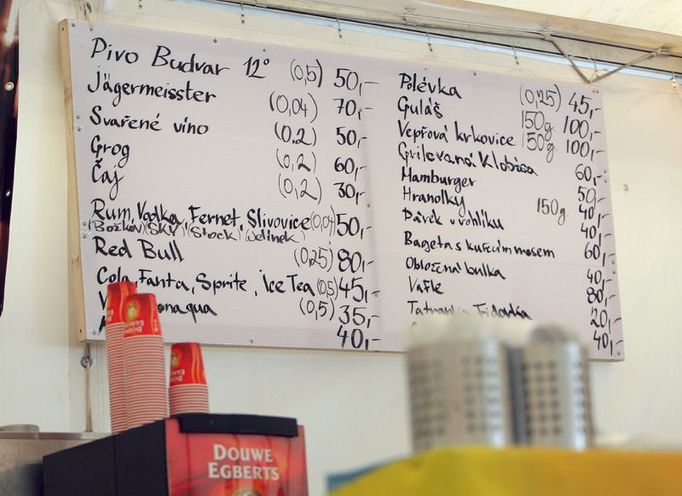 Pivo Budvar 12° (0,5) 50,-
Jägermeisster (0,04) 70,-
Svařené víno (0,2) 50,-
Grog (0,2) 60,-
Čaj (0,2) 30,-
Rum, Vodka, Fernet, Slivovice (0,04) 50,-
(Božkov) (SKY) (Stock) (Jelínek)
Red Bull (0,25) 80,-
Cola, Fanta, Sprite, Ice Tea (0,5) 45,-
(0,5) 35,-
40,-
Polévka (0,25) 45,-
Guláš 150g 100,-
Vepřová krkovice 150g 100,-
Grilovaná Klobása 60,-
Hamburger 50,-
Hranolky 150g. 40,-
Párek v rohlíku 40,-
Bageta s kuřecím masem 60,-
Obložená bulka 40,-
Vafle 80,-
Tatranka 20,-
40,-
DOUWE
EGBERTS